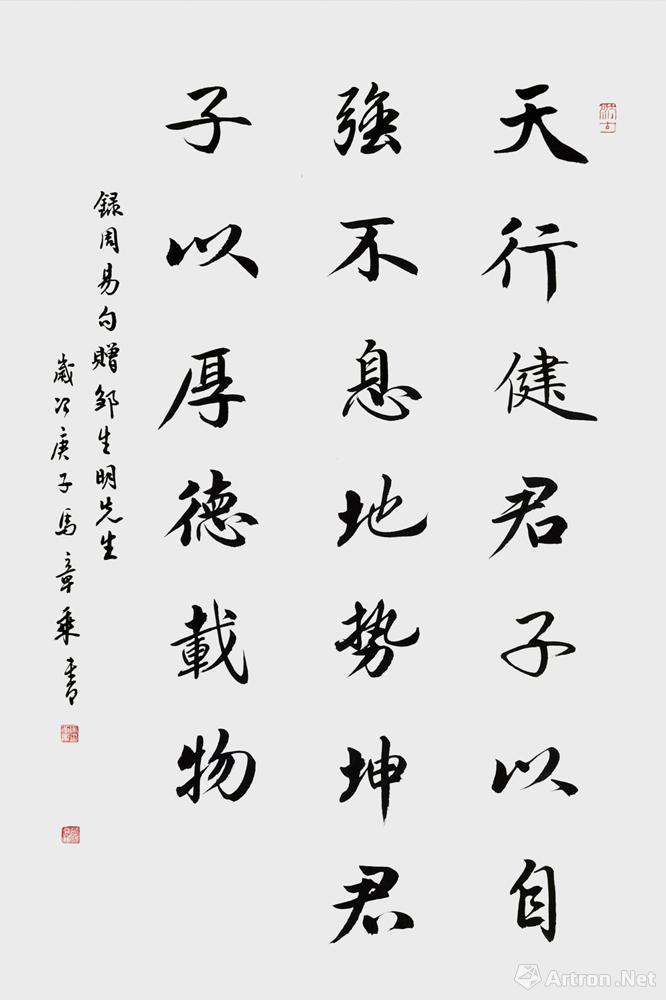 天行健君子以自
強不息地勢坤君
子以厚德載物
録周易句贈邹生明先生
歲次庚子馬章乘書
Artron.Net